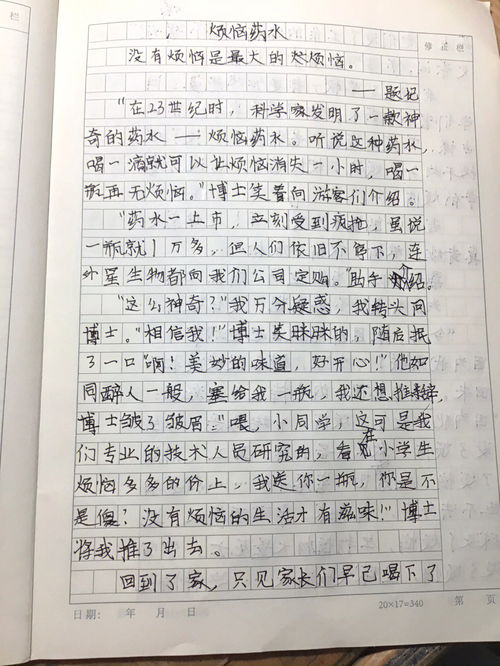 栏
修 正 栏
烦恼药水
没有烦恼是最大的烦恼。
——题记
“在23世纪时，科学家发明了一款神
奇的药水——烦恼药水。听说这种药水，
喝一滴就可以让烦恼消失一小时，喝一
瓶再无烦恼。”博士笑着向游客们介绍。
“药水一上市，立刻受到疯抢，虽说
一瓶就1万多，但人们依旧不停下，连
外星生物都向我们公司定购。”助手介绍。
“这么神奇？”我万分疑惑，我转头问
博士。“相信我！”博士笑眯眯的，随后抿
了一口“啊！美妙的味道，好开心！”他如
同醉人一般，塞给我一瓶，我还想推辞，
博士皱了皱眉：“喂，小同学，这可是我
们专业的技术人员研究的，看在小学生
烦恼多多的份上，我送你一瓶，你是不
是傻？没有烦恼的生活才有滋味！”博士
将我推了出去。
回到了家，只见家长们早已喝下了
日期： 年 月 日
20×17=340
第 页